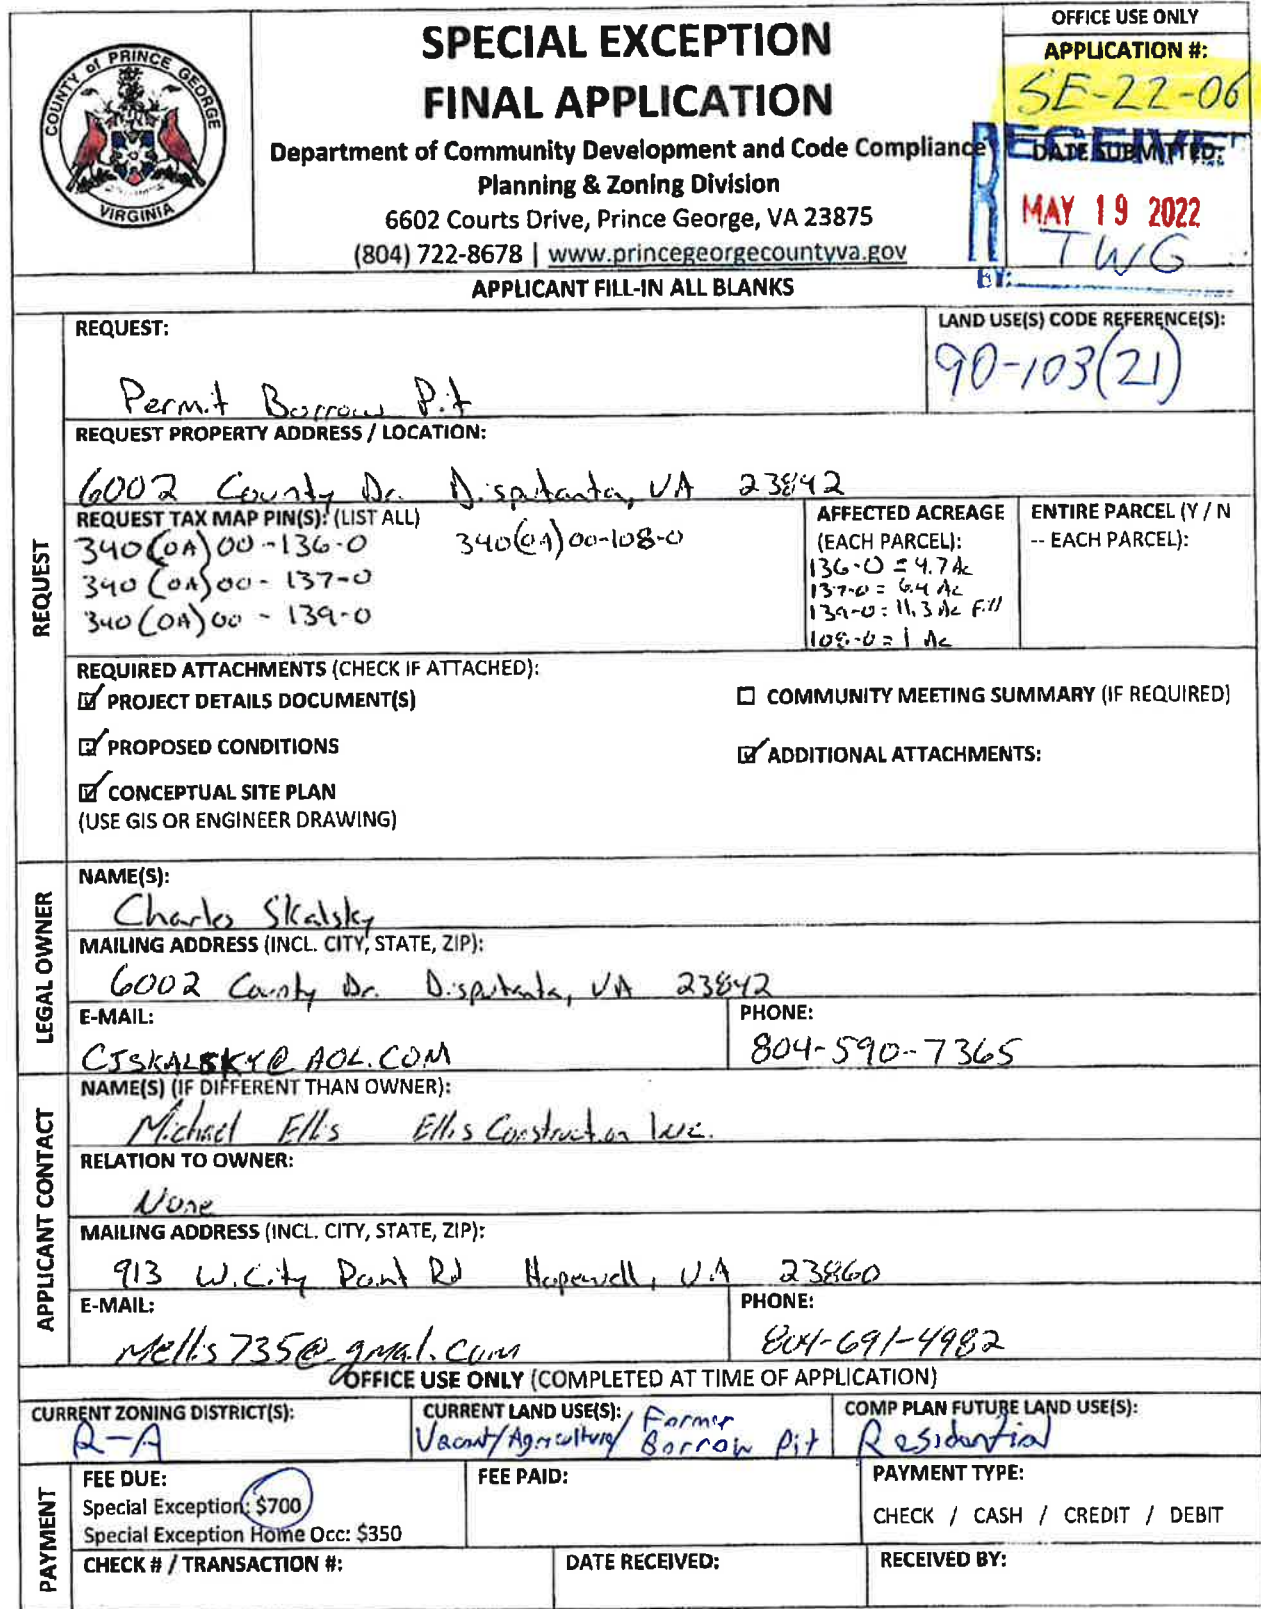 COUNTY of PRINCE GEORGE
VIRGINIA
SPECIAL EXCEPTION
FINAL APPLICATION
Department of Community Development and Code Compliance
Planning & Zoning Division
6602 Courts Drive, Prince George, VA 23875
(804) 722-8678 | www.princegeorgecountyva.gov
OFFICE USE ONLY
APPLICATION #:
SE-22-06
RECEIVE
DATE SUBMITTED:
MAY 19 2022
TWG
BY:
APPLICANT FILL-IN ALL BLANKS
REQUEST
REQUEST:
Permit Borrow Pit
LAND USE(S) CODE REFERENCE(S):
90-103(21)
REQUEST PROPERTY ADDRESS / LOCATION:
6002 County Dr. Disputanta, VA 23842
REQUEST TAX MAP PIN(S): (LIST ALL)
340(0A)00-136-0 340(0A)00-108-0
340(0A)00-137-0
340(0A)00-139-0
AFFECTED ACREAGE
(EACH PARCEL):
136-0 = 4.7 Ac
137-0 = 6.4 Ac
139-0 = 11.3 Ac Fill
108-0 = 1 Ac
ENTIRE PARCEL (Y / N
-- EACH PARCEL):
REQUIRED ATTACHMENTS (CHECK IF ATTACHED):
PROJECT DETAILS DOCUMENT(S)
COMMUNITY MEETING SUMMARY (IF REQUIRED)
PROPOSED CONDITIONS
ADDITIONAL ATTACHMENTS:
CONCEPTUAL SITE PLAN
(USE GIS OR ENGINEER DRAWING)
LEGAL OWNER
NAME(S):
Charles Skalsky
MAILING ADDRESS (INCL. CITY, STATE, ZIP):
6002 County Dr. Disputanta, VA 23842
E-MAIL:
CJSKALSKY@AOL.COM
PHONE:
804-590-7365
APPLICANT CONTACT
NAME(S) (IF DIFFERENT THAN OWNER):
Michael Ellis Ellis Construction Inc.
RELATION TO OWNER:
None
MAILING ADDRESS (INCL. CITY, STATE, ZIP):
913 W. City Point Rd Hopewell, VA 23860
E-MAIL:
Mellis735@gmail.com
PHONE:
804-691-4982
OFFICE USE ONLY (COMPLETED AT TIME OF APPLICATION)
CURRENT ZONING DISTRICT(S):
R-A
CURRENT LAND USE(S):
Vacant/Agriculture/ Former Borrow Pit
COMP PLAN FUTURE LAND USE(S):
Residential
PAYMENT
FEE DUE:
Special Exception: $700
Special Exception Home Occ: $350
FEE PAID:
PAYMENT TYPE:
CHECK / CASH / CREDIT / DEBIT
CHECK # / TRANSACTION #:
DATE RECEIVED:
RECEIVED BY: